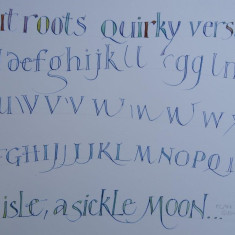 rt roots quirky vers
defghijkll cggln
uvvvvwwwwx
GHIJJJJKLMNOPQ
isle, a sickle MOON...